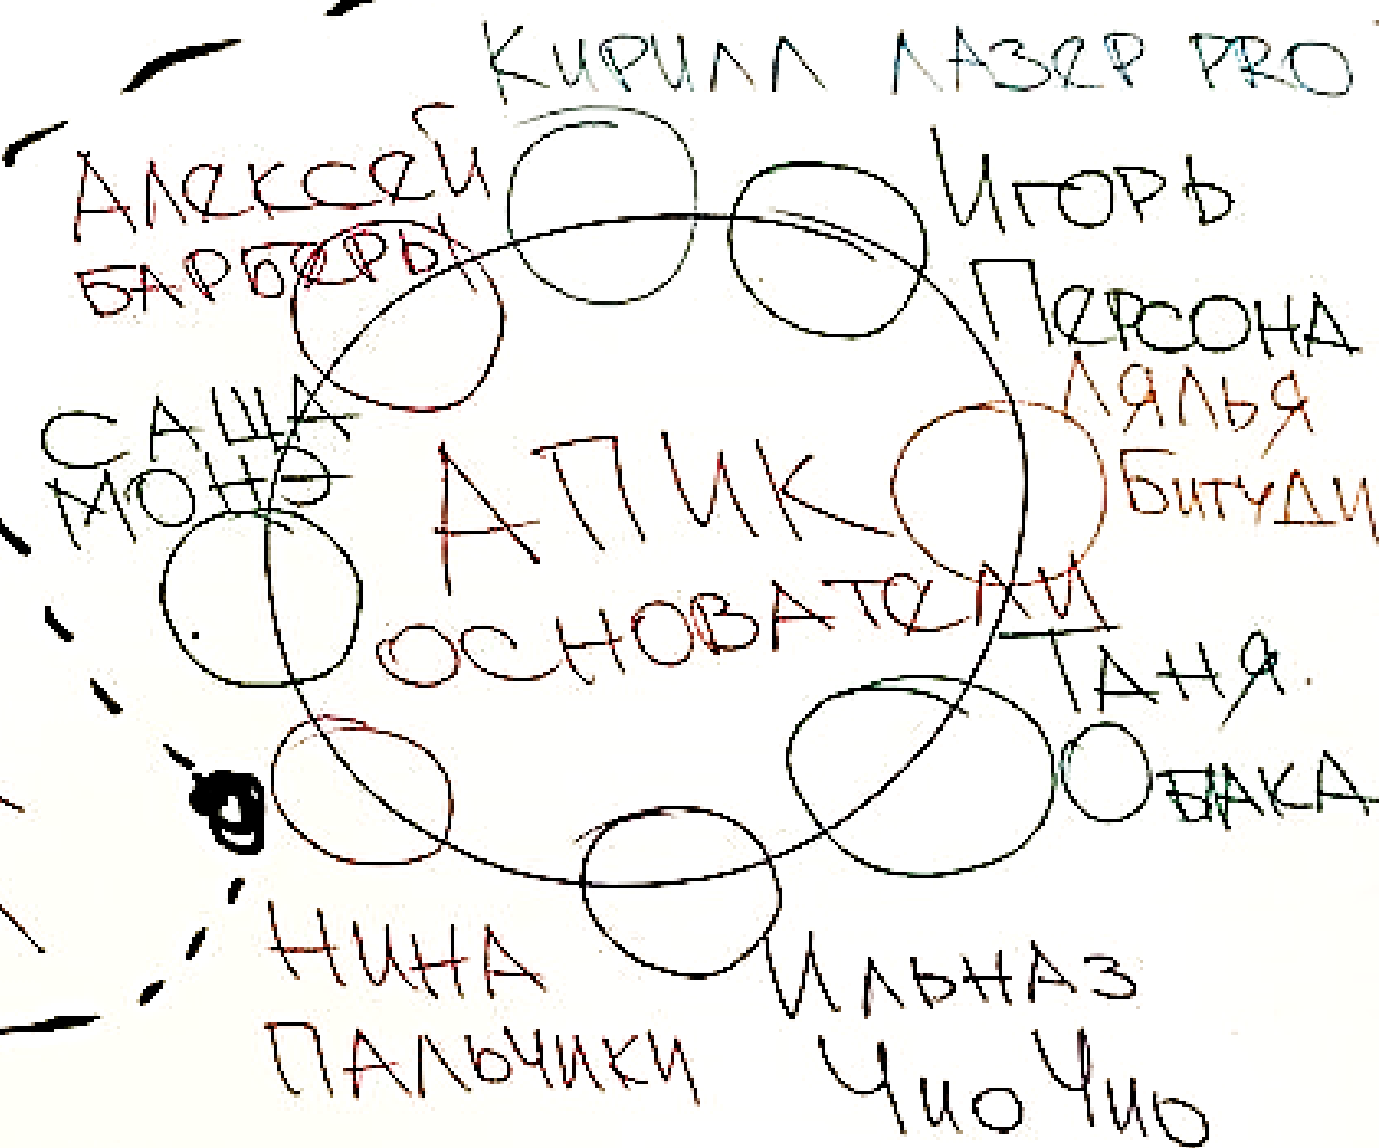 КИРИЛЛ ЛАЗЕР PRO
АЛЕКСЕЙ
БАРБЕРЫ
ИГОРЬ
ПЕРСОНА
САША
МОНЭ
ЛЯЛЬЯ
БИТУДИ
АПИК
ОСНОВАТЕЛИ
ТАНЯ
ОБЛАКА
НИНА
ПАЛЬЧИКИ
ИЛЬНАЗ
ЧИО ЧИО